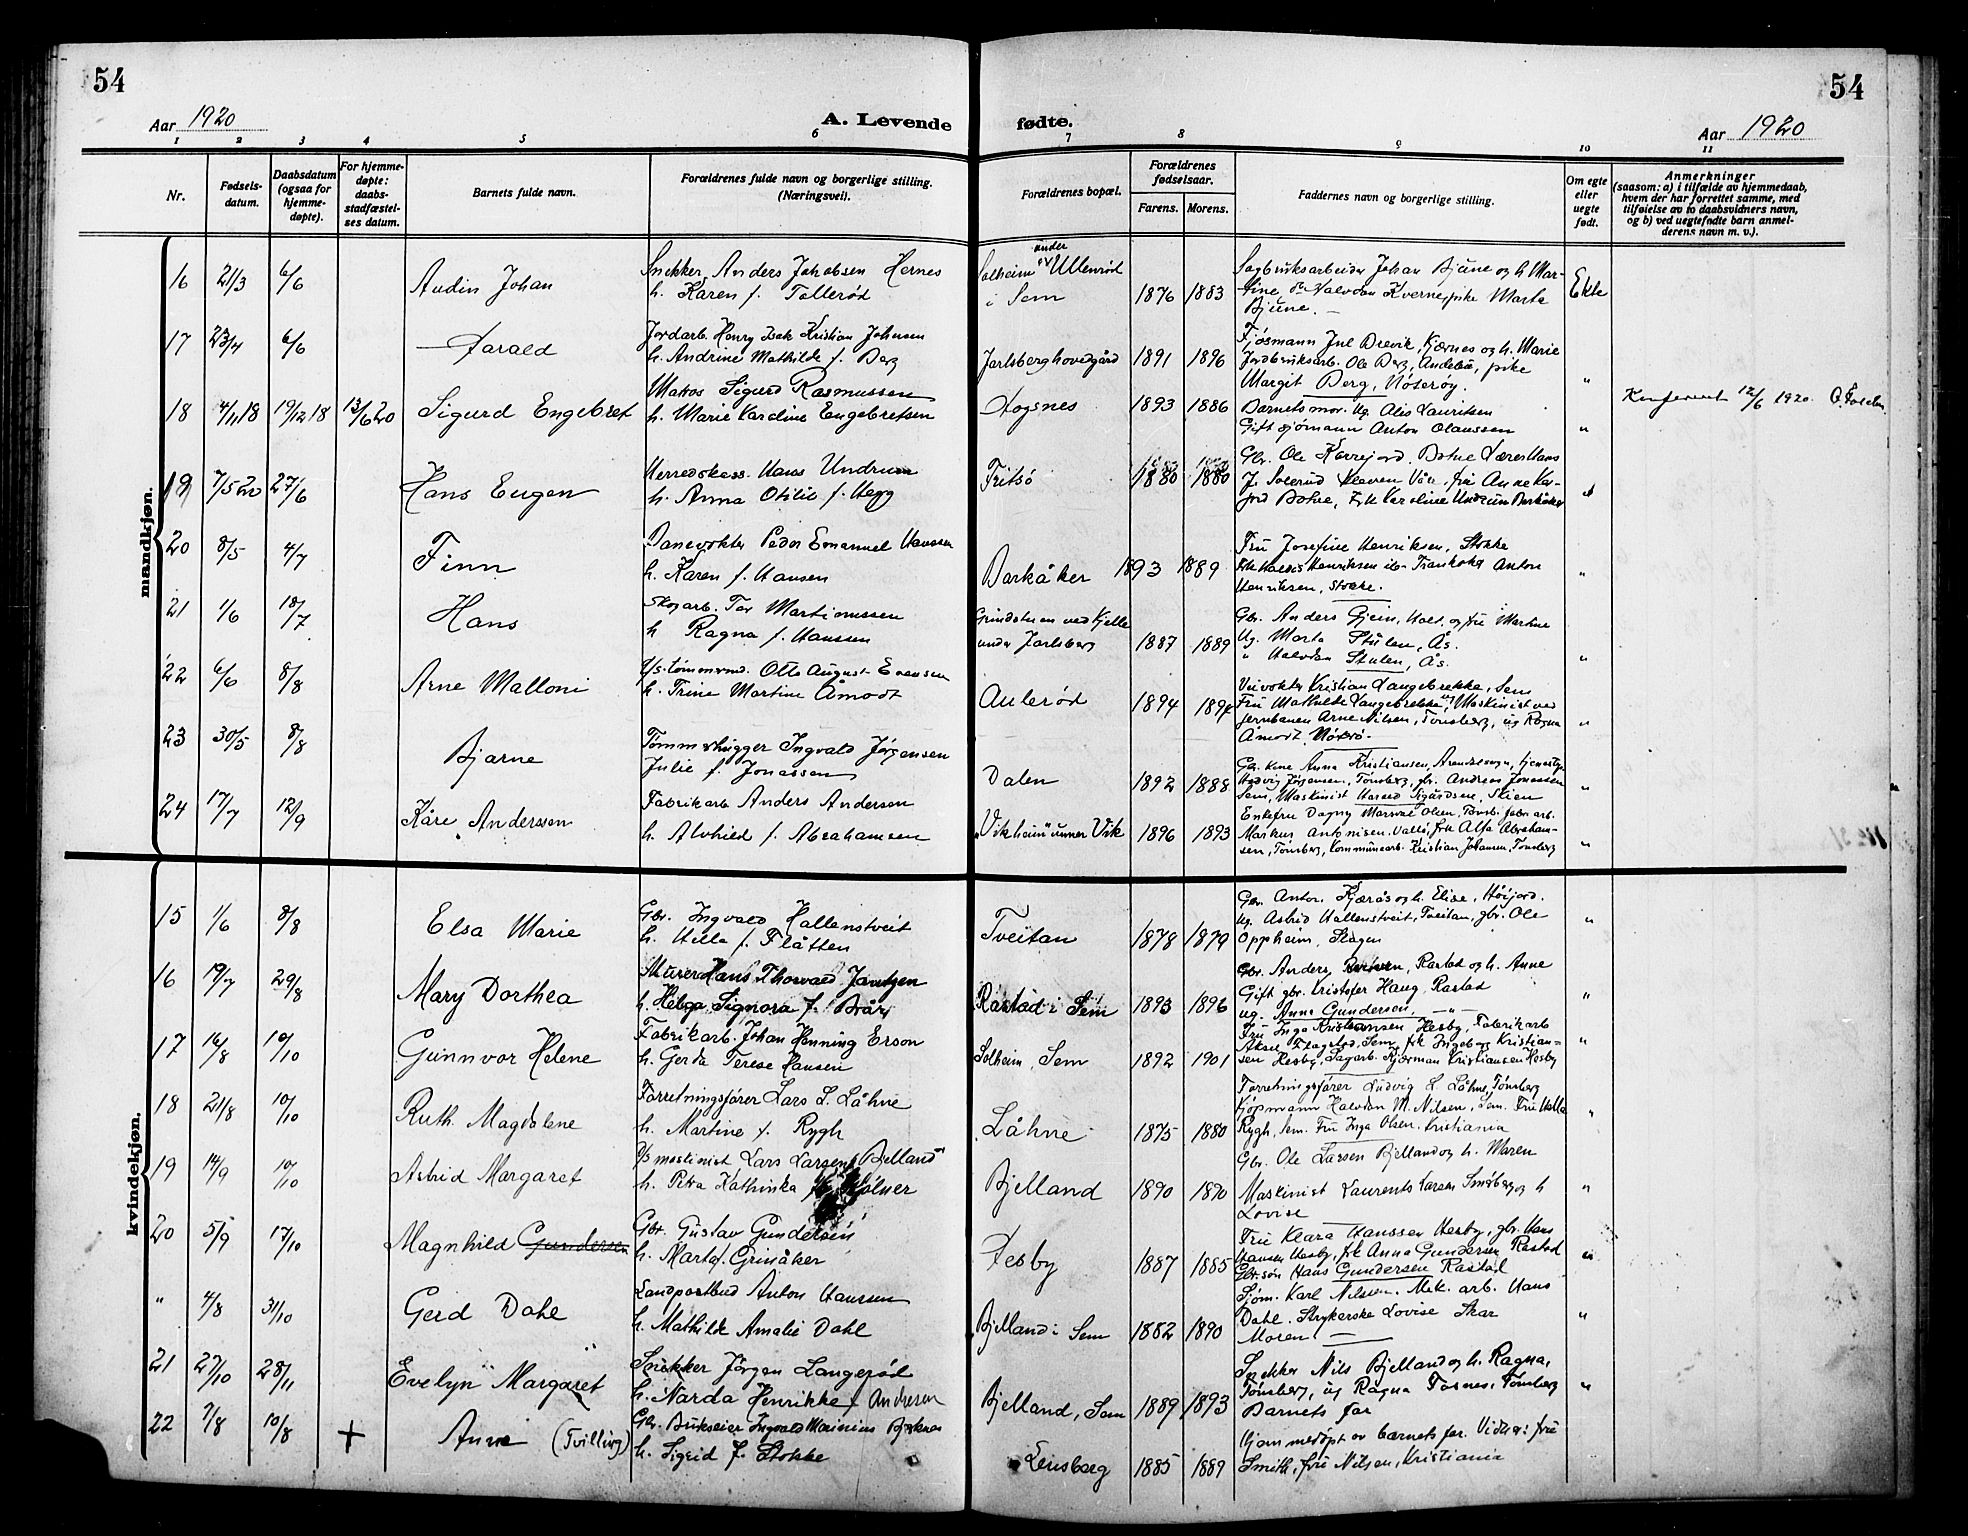 54
54
Aar 1920
A. Levende
fødte.
Aar 1920
1 2 3 4 5 6 7 8 9 10 11
Nr.
Fødsels-
datum.
Daabsdatum
(ogsaa for
hjemme-
døpte).
For hjemme-
døpte:
daabs-
stadfæstel-
ses datum.
Barnets fulde navn.
Forældrenes fulde navn og borgerlige stilling.
(Næringsvei).
Forældrenes bopæl.
Forældrenes
fødselsaar.
Farens. Morens.
Faddernes navn og borgerlige stilling.
Om egte
eller
uegte
født.
Anmerkninger
(saasom: a) i tilfælde av hjemmedaab,
hvem der har forrettet samme, med
tilføielse av to daabsvidners navn,
og b) ved uegtefødte barn anmel-
derens navn m. v.).
mandkjøn.
16 21/3 6/6 Audin Johan
Snekker Anders Jakobsen Hernes
h. Karen f. Tallerød
Solheim under Ullenrød
i Sem 1876 1883
Sagbruksarbeider Johan Bjune og h. Mar-
tine, Halvdan Kverne, pike Marta
Bjune. —
Ekte
17 23/4 6/6 Harald
Jordarb. Henry Isak Kristian Johnsen
h. Andrine Mathilde f. Berg
Jarlsberg hovedgård 1891 1896
Fjøsmann Jul Brevik, Kjærnes og h. Marie
Jordbruksarb. Ole Berg, Andebu, pike
Margit Berg, Nøterøy. "
18 4/11 18 19/12 18 13/6 20 Sigurd Engebret
Matros Sigurd Rasmussen
h. Marie Karoline Engebretsen
Hogsnes 1893 1886
Barnets mor. Ug. Alis Lauritsen
Gift sjømann Anton Olaussen "
Konferert 12/6 1920.
19 7/5 20 27/6 Hans Eugen
Herredskass. Hans Undrum
h. Anna Otilie f. Hegg
Fritsø 1880 1880
Gbr. Ole Karrejord, Bohre Lærer Hans
J. Solerud Kleven Våle, fru Anne Kar-
jord Bohre, Frk Karoline Undrum Barkåker "
20 8/5 4/7 Finn
Banevokter Peder Emanuel Hanssen
h. Karen f. Hansen
Barkåker 1893 1889
Fru Josefine Henriksen, Stokke
Henriksen, Anton
Henriksen, Stokke. "
21 1/6 18/7 Hans
Skogarb. Tor Martinussen
h Ragna f. Hanssen
Grindstuen ved Kjelle
under Jarlsberg 1887 1889
Gbr. Anders Gjein, Holt, og fru Martine
Ug. Marta Stulen, Ås.
" Halvdan Stulen, Ås. "
22 6/6 8/8 Arne Malloni
Otto August Evensen
h. Trine Martine Åmodt
Aulerød 1894 1894
Veivokter Kristian Langebrekke, Sem
Fru Mathilde Langebrekke, Maskinist ved
jernbanen Arne Nilsen, Tønsberg, ug Ragna
Åmodt, Nøterø. "
23 30/5 8/8 Bjarne
Tømmerhugger Ingvald Jørgensen
Julie f. Jonassen
Dalen 1892 1888
Anna Kristiansen,
Hedvig Jørgensen, Tønsberg, gbr. Andreas Jonassen
Sem, Maskinist Harald Sigurdsen, Skien "
24 17/7 12/9 Kåre Anderssen
Fabrikarb Anders Andersen
h. Alvhild f. Abrahamsen
"Vikheim" under Vik 1896 1893
Enkefru Dagny Marine Olsen, Tønsb. fabr. arb.
Markus Antonisen, Vallø, frk Alfa Abraham-
sen, Tønsberg, Kommunearb. Kristian Johansen, Tønsberg "
kvindekjøn.
15 1/6 8/8 Elsa Marie
Gbr. Ingvald Hallenstveit
h. Helle f. Flåtten
Tveitan 1878 1879
Gbr. Anton Kjærås og h. Elise, Høijord.
Ug. Astrid Hallenstveit, Tveitan, gbr. Ole
Oppheim, Skagen "
16 19/7 29/8 Mary Dorthea
Murer Hans Thorvald Jantzen
h. Helga Signora f. Bråy
Råstad i Sem 1893 1896
Gbr. Anders, Rastad og h. Anne
Gift gbr. Kristofer Haug, Rastad
ug. Anna Gundersen, — " — "
17 16/8 10/10 Gunnvor Helene
Fabrikarb. Johan Henning Erson
h. Gerda Terese Hansen
Solheim, Sem 1892 1901
Fru Inga Kristiansen Hesby, Fabrikarb
Aksel Flagstad, Sem, frk Ingeborg Kristian-
sen Hesby, Sagarb. Hjerman Kristiansen Hesby "
18 21/8 10/10 Ruth Magdalene
Forretningsfører Lars L. Låhne
h. Martine f. Rygh
Låhne 1875 1880
Forretningsfører Ludvig L. Låhne, Tønsberg
Kjøpmann Halvdan M. Nilsen, Sem. Fru Helle
Rygh, Sem. Fru Inga Olsen. Kristiania "
19 14/9 10/10 Astrid Margaret
H/s maskinist Lars Larsen Bjelland
h. Petra Kathinka Hølner
Bjelland 1890 1890
Gbr. Ole Larsen Bjelland og h. Maren
Maskinist Laurents Larsen Smørberg og h
Lovise "
20 5/9 17/10 Magnhild Gundersen
Gbr. Gustav Gundersen
h. Marta f. Grinåker
Hesby 1887 1885
Fru Klara Hanssen Hesby, gbr. Hans
Hansen Hesby, frk Anna Gundersen Rastad
Gbr.søn Hans Gundersen Rastad "
" 4/8 31/10 Gerd Dahl
Landpostbud Anton Hanssen
h. Mathilde Amalie Dahl
Bjelland i Sem 1882 1890
Sjøm. Karl Nilsen. Mek. arb. Hans
Dahl. Strykerske Lovise Skar
Moren. — "
21 27/10 28/11 Evelyn Margaret
Snekker Jørgen Langerød
h. Narda Henrikke f. Andresen
Bjelland, Sem 1889 1893
Snekker Nils Bjelland og h. Ragna,
Tønsberg, ug Ragna Fosnes, Tønsberg
Barnets far "
22 7/8 10/8 + Anne (Tvilling)
Gbr. Brukseier Ingvald Marinius
h. Sigrid f. Stokke
Leirsberg 1885 1889
Hjemmedøpt av barnets far. Vidner: fru
Smith, fru Nilsen, Kristiania